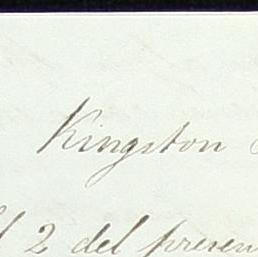 Kingston
2 del presen